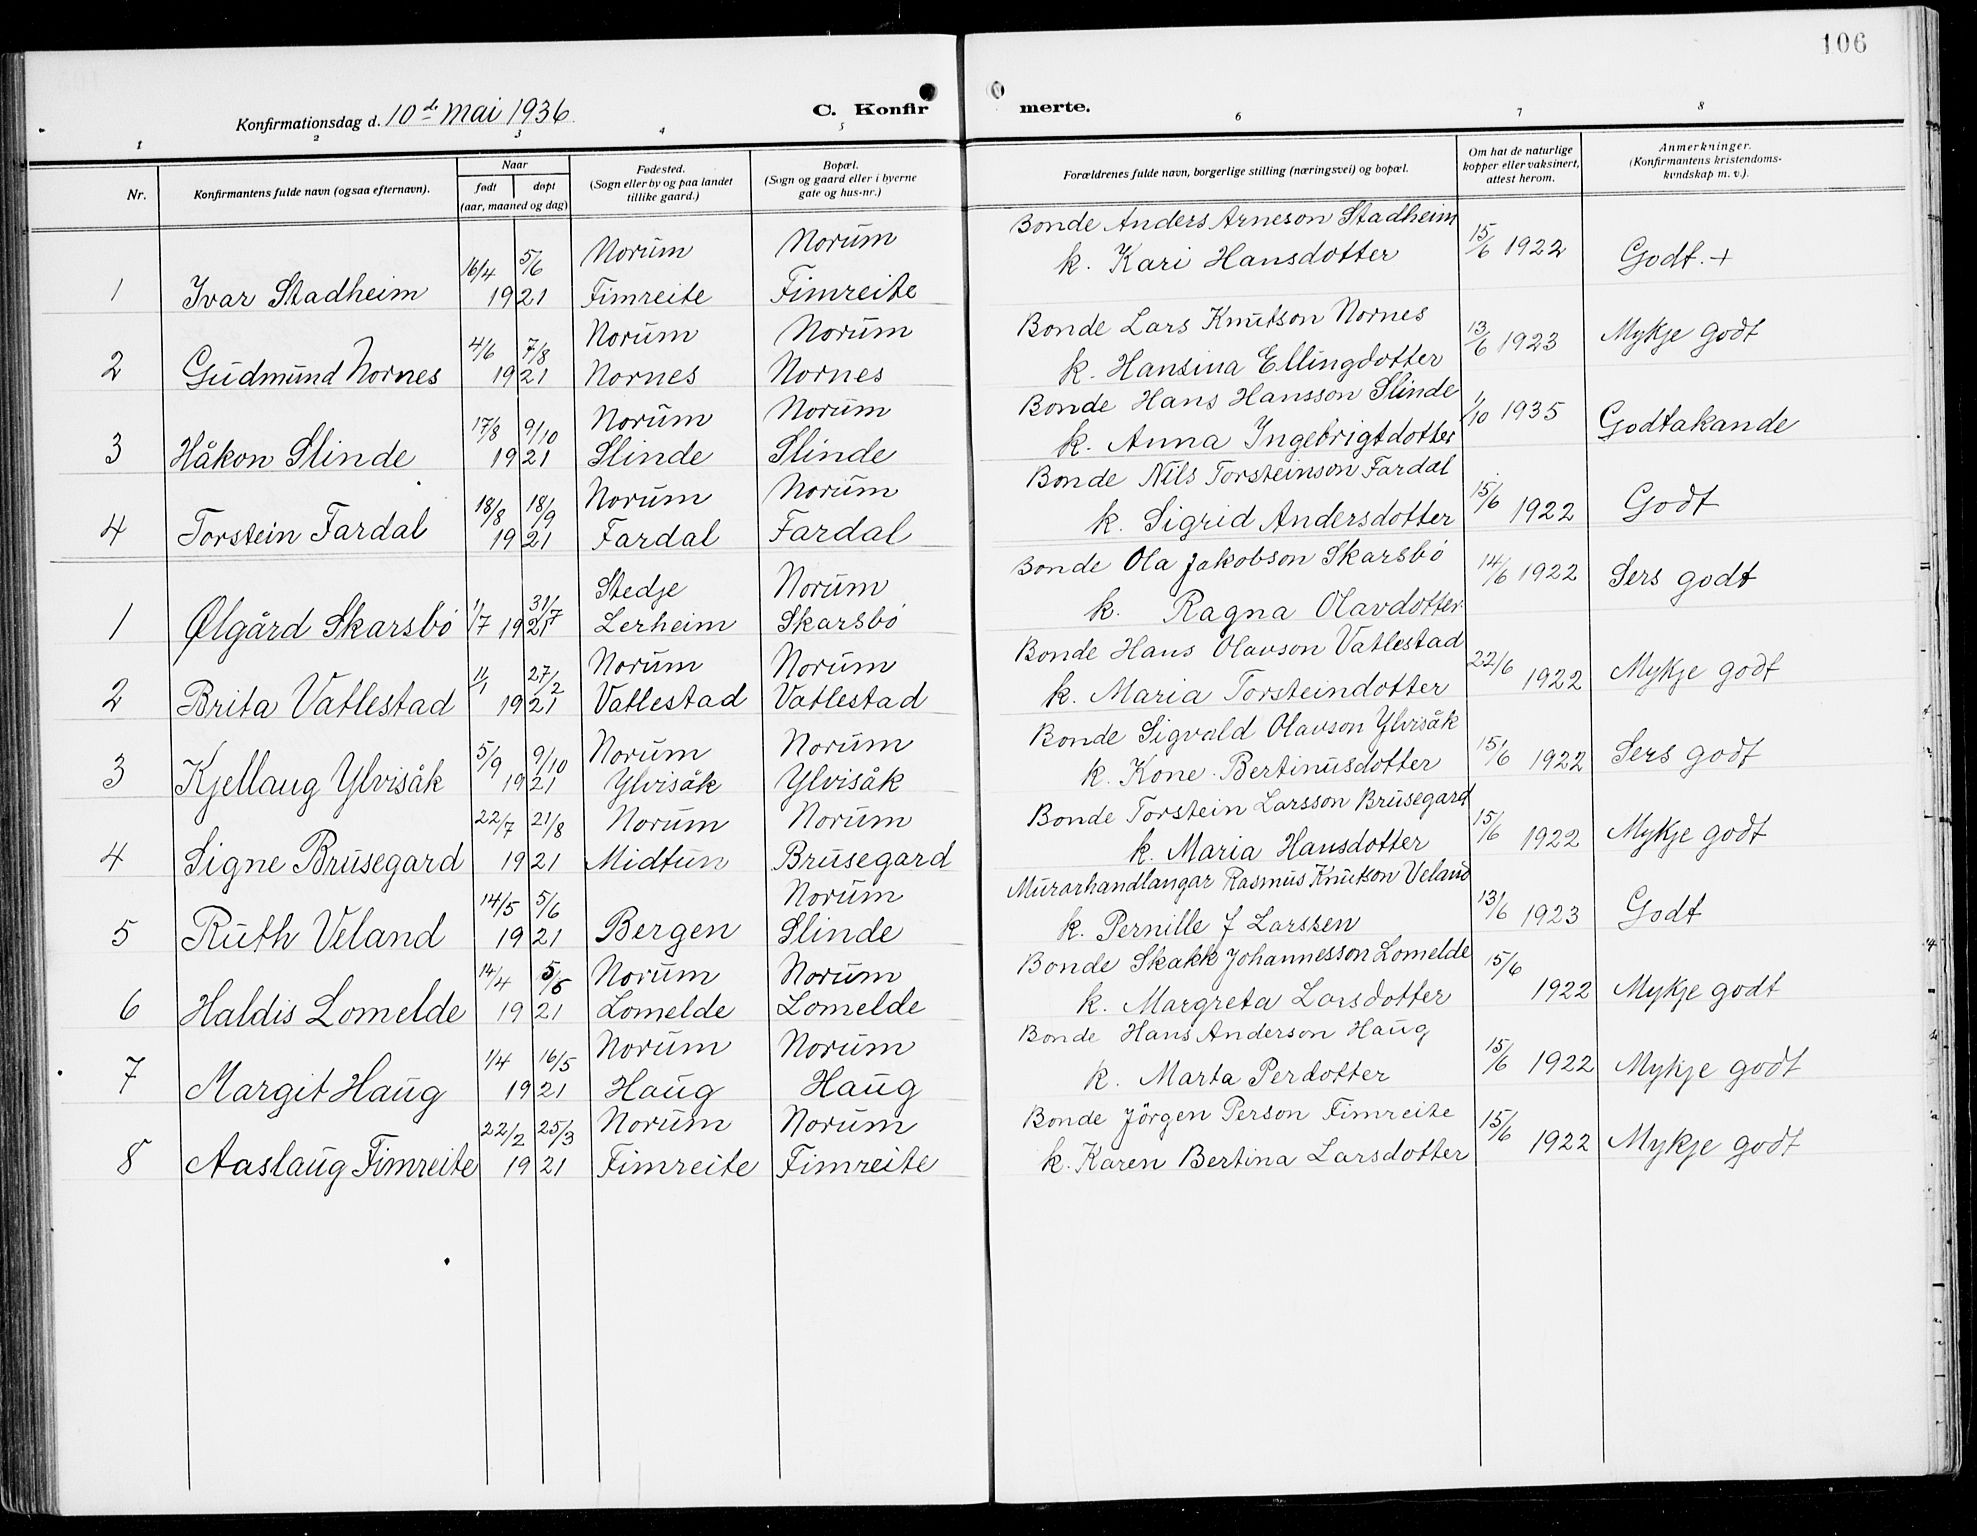 106
Konfirmationsdag d. 10de mai 1936. C. Konfirmerte.
1 2 3 4 5 6 7 8
Nr.
Konfirmantens fulde navn (ogsaa efternavn).
Naar
født døpt
(aar, maaned og dag)
Fødested.
(Sogn eller by og paa landet
tillike gaard.)
Bopæl.
(Sogn og gaard eller i byerne
gate og hus-nr.)
Forældrenes fulde navn, borgerlige stilling (næringsvei) og bopæl.
Om hat de naturlige
kopper eller vaksinert,
attest herom.
Anmerkninger.
(Konfirmantens kristendoms-
kundskap m. v.).
16/4 5/6 Norum Norum Bonde Anders Arneson Stadheim 15/6 1922 Godt. +
1 Ivar Stadheim 1921 Fimreite Fimreite k. Kari Hansdotter
4/6 7/8 Norum Norum Bonde Lars Knutson Nornes 13/6 1923 Mykje godt
2 Gudmund Nornes 1921 Nornes Nornes k. Hansina Ellingdotter
17/8 9/10 Norum Norum Bonde Hans Hansson Slinde 1/10 1935 Godtakande
3 Håkon Slinde 1921 Slinde Slinde k. Anna Ingebrigtdotter
18/8 18/9 Norum Norum Bonde Nils Torsteinson Fardal 15/6 1922 Godt
4 Torstein Fardal 1921 Fardal Fardal k. Sigrid Andersdotter
1/7 31/7 Stedje Norum Bonde Ola Jakobson Skarsbö 14/6 1922 Sers godt
1 Ølgård Skarsbö 1921 Lerheim Skarsbö k. Ragna Olavdotter
11/1 27/2 Norum Norum Bonde Hans Olavson Vatlestad 22/6 1922 Mykje godt
2 Brita Vatlestad 1921 Vatlestad Vatlestad k. Maria Torsteindotter
5/9 9/10 Norum Norum Bonde Sigvald Olavson Ylvisåk 15/6 1922 Sers godt
3 Kjellaug Ylvisåk 1921 Ylvisåk Ylvisåk k. Kone Bertinusdotter
22/7 21/8 Norum Norum Bonde Torstein Larsson Brusegard 15/6 1922 Mykje godt
4 Signe Brusegard 1921 Midtun Brusegard k. Maria Hansdotter
14/5 5/6 Norum Murarhandlangar Rasmus Knutson Veland 13/6 1923 Godt
5 Ruth Veland 1921 Bergen Slinde k. Pernille J Larssen
14/4 5/5 Norum Norum Bonde Skakk Johannesson Lomelde 15/6 1922 Mykje godt
6 Haldis Lomelde 1921 Lomelde Lomelde k. Margreta Larsdotter
1/4 16/5 Norum Norum Bonde Hans Anderson Haug 15/6 1922 Mykje godt
7 Margit Haug 1921 Haug Haug k. Marta Perdotter
22/2 25/3 Norum Norum Bonde Jörgen Person Fimreite 15/6 1922 Mykje godt
8 Aaslaug Fimreite 1921 Fimreite Fimreite k. Karen Bertina Larsdotter